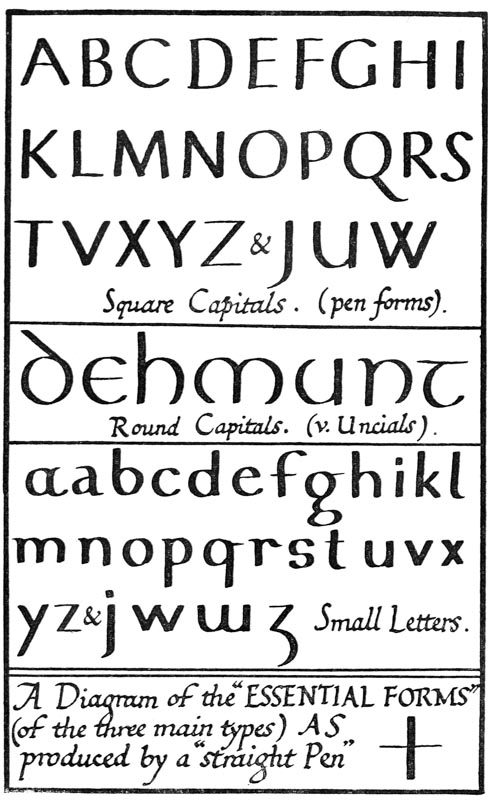 ABCDEFGHI
KLMNOPQRS
TVXYZ&JUW
Square Capitals. (pen forms).
dEhmunt
Round Capitals. (v. Uncials).
aabcdefghikl
mnopqrstuvx
yz&jwwʒ Small Letters.
A Diagram of the "ESSENTIAL FORMS"
(of the three main types) AS
produced by a "straight Pen"